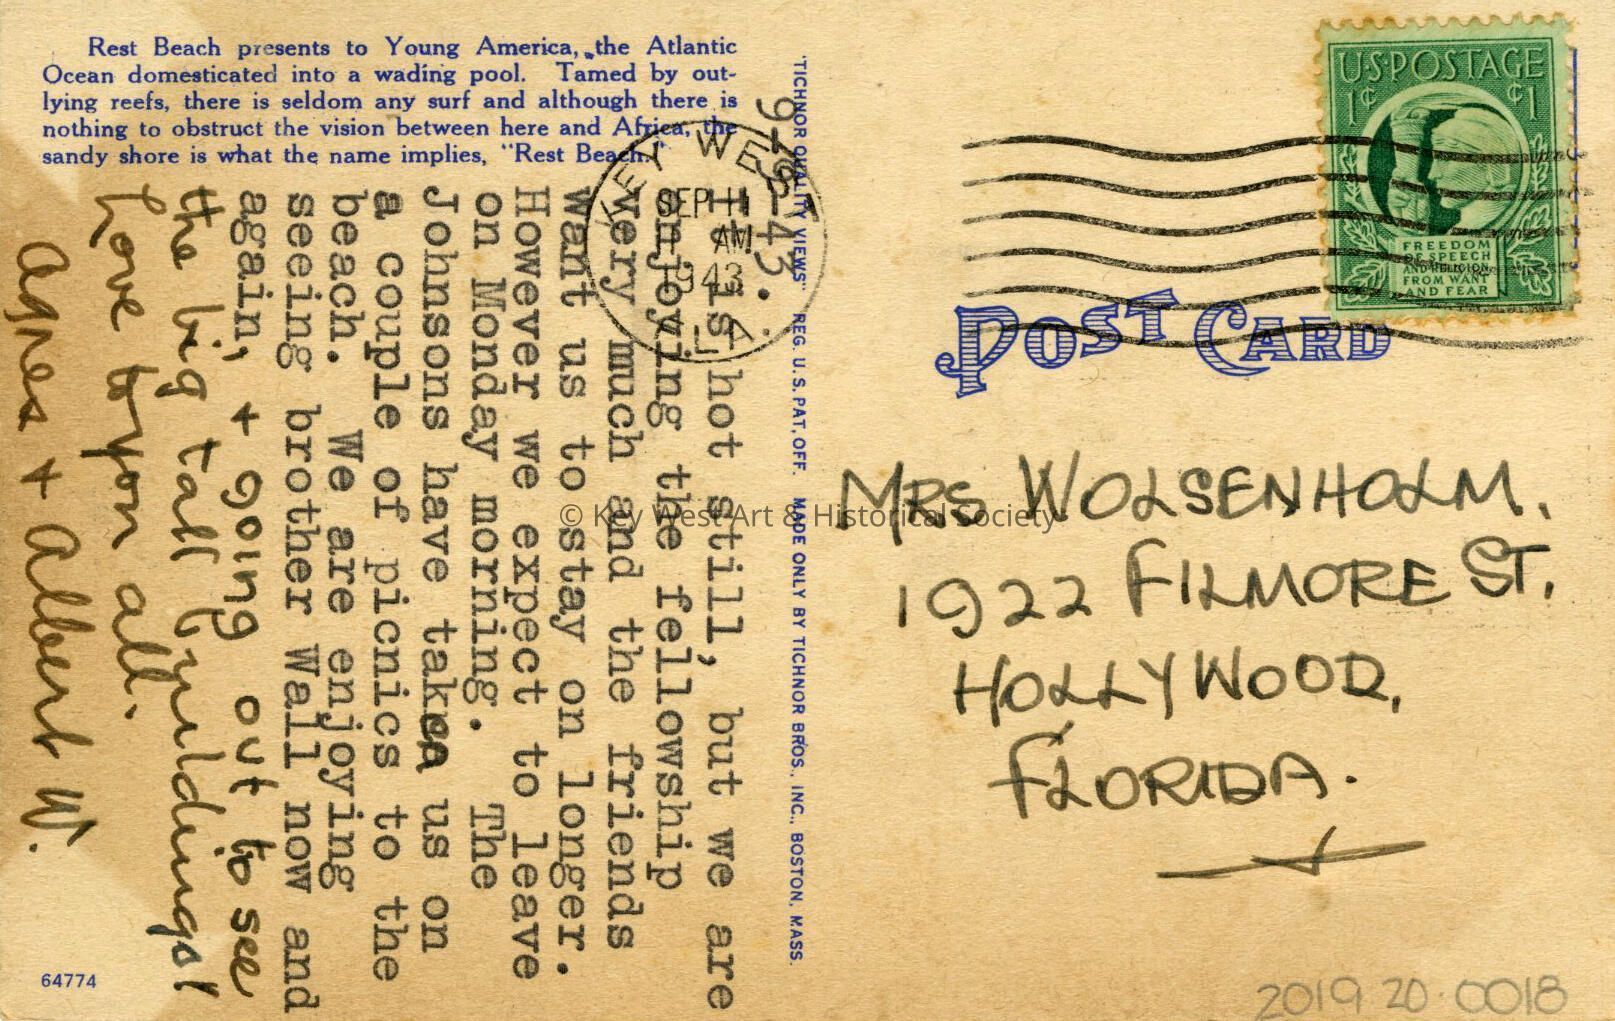 Rest Beach presents to Young America, the Atlantic
Ocean domesticated into a wading pool. Tamed by out-
lying reefs, there is seldom any surf and although there is
nothing to obstruct the vision between here and Africa, the
sandy shore is what the name implies, "Rest Beach."
9-10-43.
It is hot still, but we are
enjoying the fellowship
very much and the friends
want us to stay on longer.
However we expect to leave
on Monday morning. The
Johnsons have taken us on
a couple of picnics to the
beach. We are enjoying
seeing brother Wall now and
again, + going out to see
the big tall buildings!
Love to you all.
Agnes + Albert W.
64774
"TICHNOR QUALITY VIEWS" REG. U. S. PAT. OFF. MADE ONLY BY TICHNOR BROS., INC., BOSTON, MASS.
KEY WEST
SEP 11
AM
1943
FLA.
U.S. POSTAGE
1¢ ¢1
FREEDOM
OF SPEECH
AND RELIGION,
FROM WANT
AND FEAR
POST CARD
MRS WOLSENHOLM.
1922 FILMORE ST.
HOLLYWOOD,
FLORIDA.
© Key West Art & Historical Society
2019 20.0018